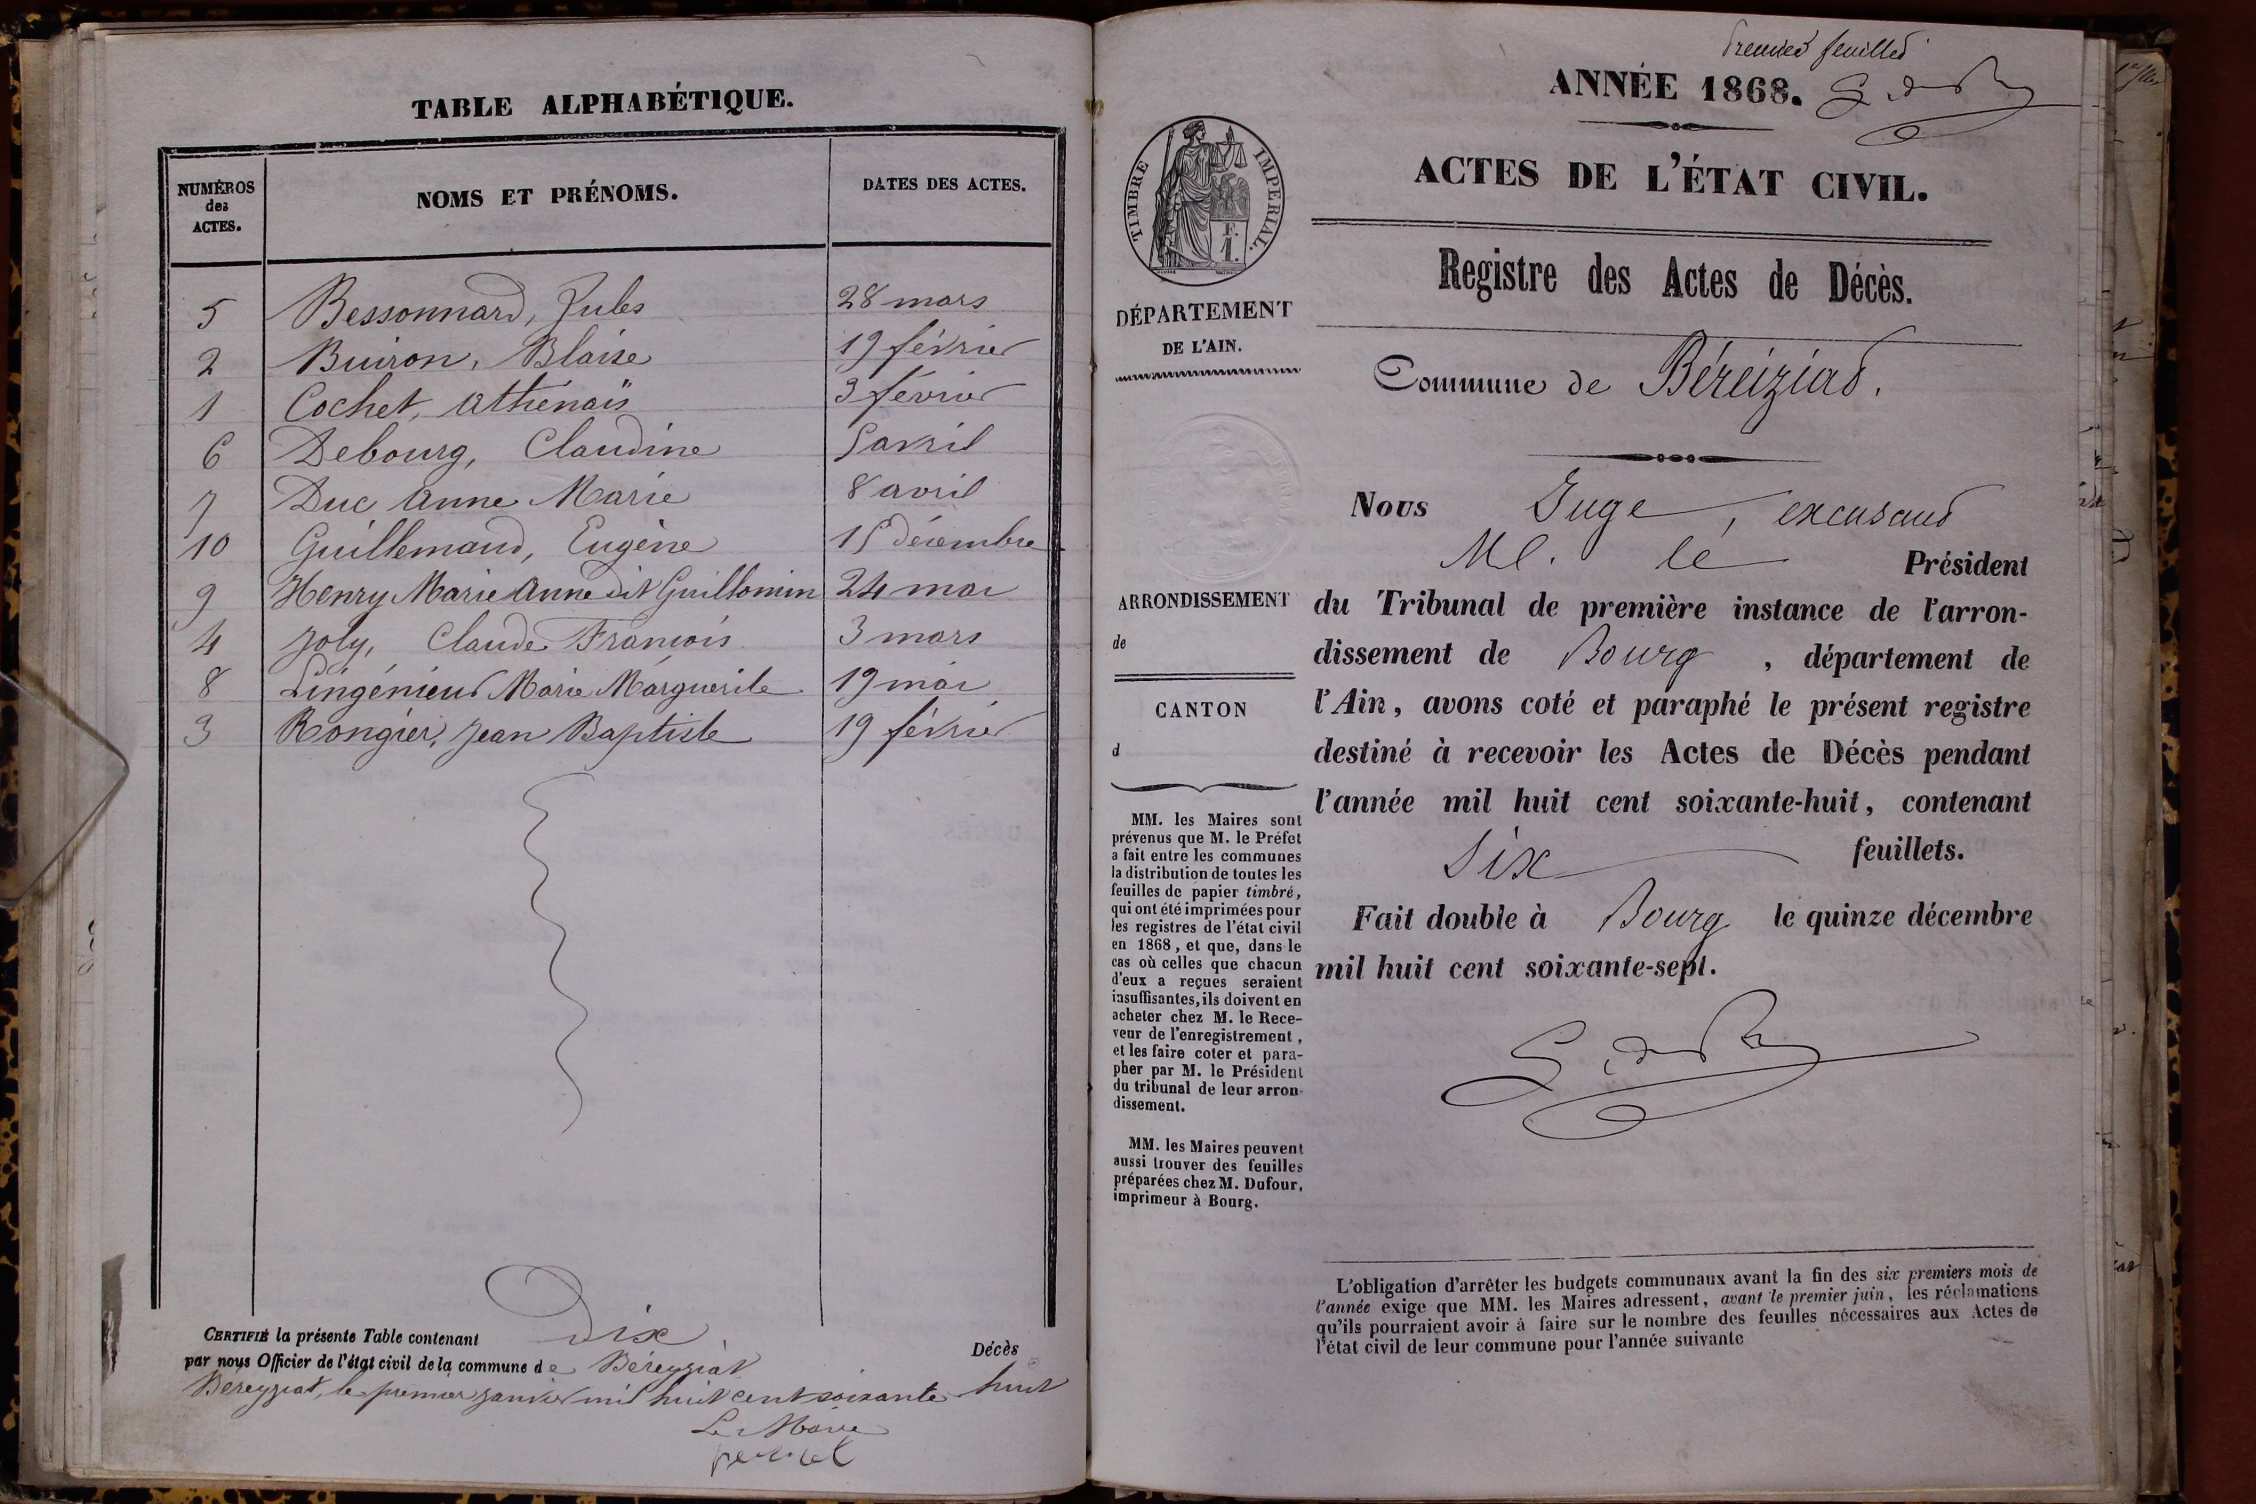 TABLE ALPHABÉTIQUE.
NUMÉROS
des
ACTES.
NOMS ET PRÉNOMS.
DATES DES ACTES.
5 Bessonnard, Jules 28 mars
2 Buiron, Blaise 19 février
1 Cochet, Athénaïs 3 février
6 Debourg, Claudine 5 avril
7 Duc Anne Marie 8 avril
10 Guillemaud, Eugène 15 décembre
9 Henry Marie Anne dit Guillomin 24 mai
4 Joly, Claude François 3 mars
8 Lingénieur Marie Marguerite 19 mai
3 Rongier, Jean Baptiste 19 février
CERTIFIÉ la présente Table contenant Dix Décès
par nous Officier de l'état civil de la commune de Béreyziat
Béreyziat, le premier janvier mil huit cent soixante huit
Le Maire
Premier feuillet
ANNÉE 1868.
ACTES DE L'ÉTAT CIVIL.
TIMBRE IMPERIAL.
F.
1.
Registre des Actes de Décès.
DÉPARTEMENT
DE L'AIN.
Commune de Béreiziad.
Nous Juge, excusant
M. le Président
ARRONDISSEMENT
de
CANTON
d
du Tribunal de première instance de l'arron-
dissement de Bourg, département de
l'Ain, avons coté et paraphé le présent registre
destiné à recevoir les Actes de Décès pendant
l'année mil huit cent soixante-huit, contenant
six feuillets.
Fait double à Bourg le quinze décembre
mil huit cent soixante-sept.
MM. les Maires sont
prévenus que M. le Préfet
a fait entre les communes
la distribution de toutes les
feuilles de papier timbré,
qui ont été imprimées pour
les registres de l'état civil
en 1868, et que, dans le
cas où celles que chacun
d'eux a reçues seraient
insuffisantes, ils doivent en
acheter chez M. le Rece-
veur de l'enregistrement,
et les faire coter et para-
pher par M. le Président
du tribunal de leur arron-
dissement.
MM. les Maires peuvent
aussi trouver des feuilles
préparées chez M. Dufour,
imprimeur à Bourg.
L'obligation d'arrêter les budgets communaux avant la fin des six premiers mois de
l'année exige que MM. les Maires adressent, avant le premier juin, les réclamations
qu'ils pourraient avoir à faire sur le nombre des feuilles nécessaires aux Actes de
l'état civil de leur commune pour l'année suivante